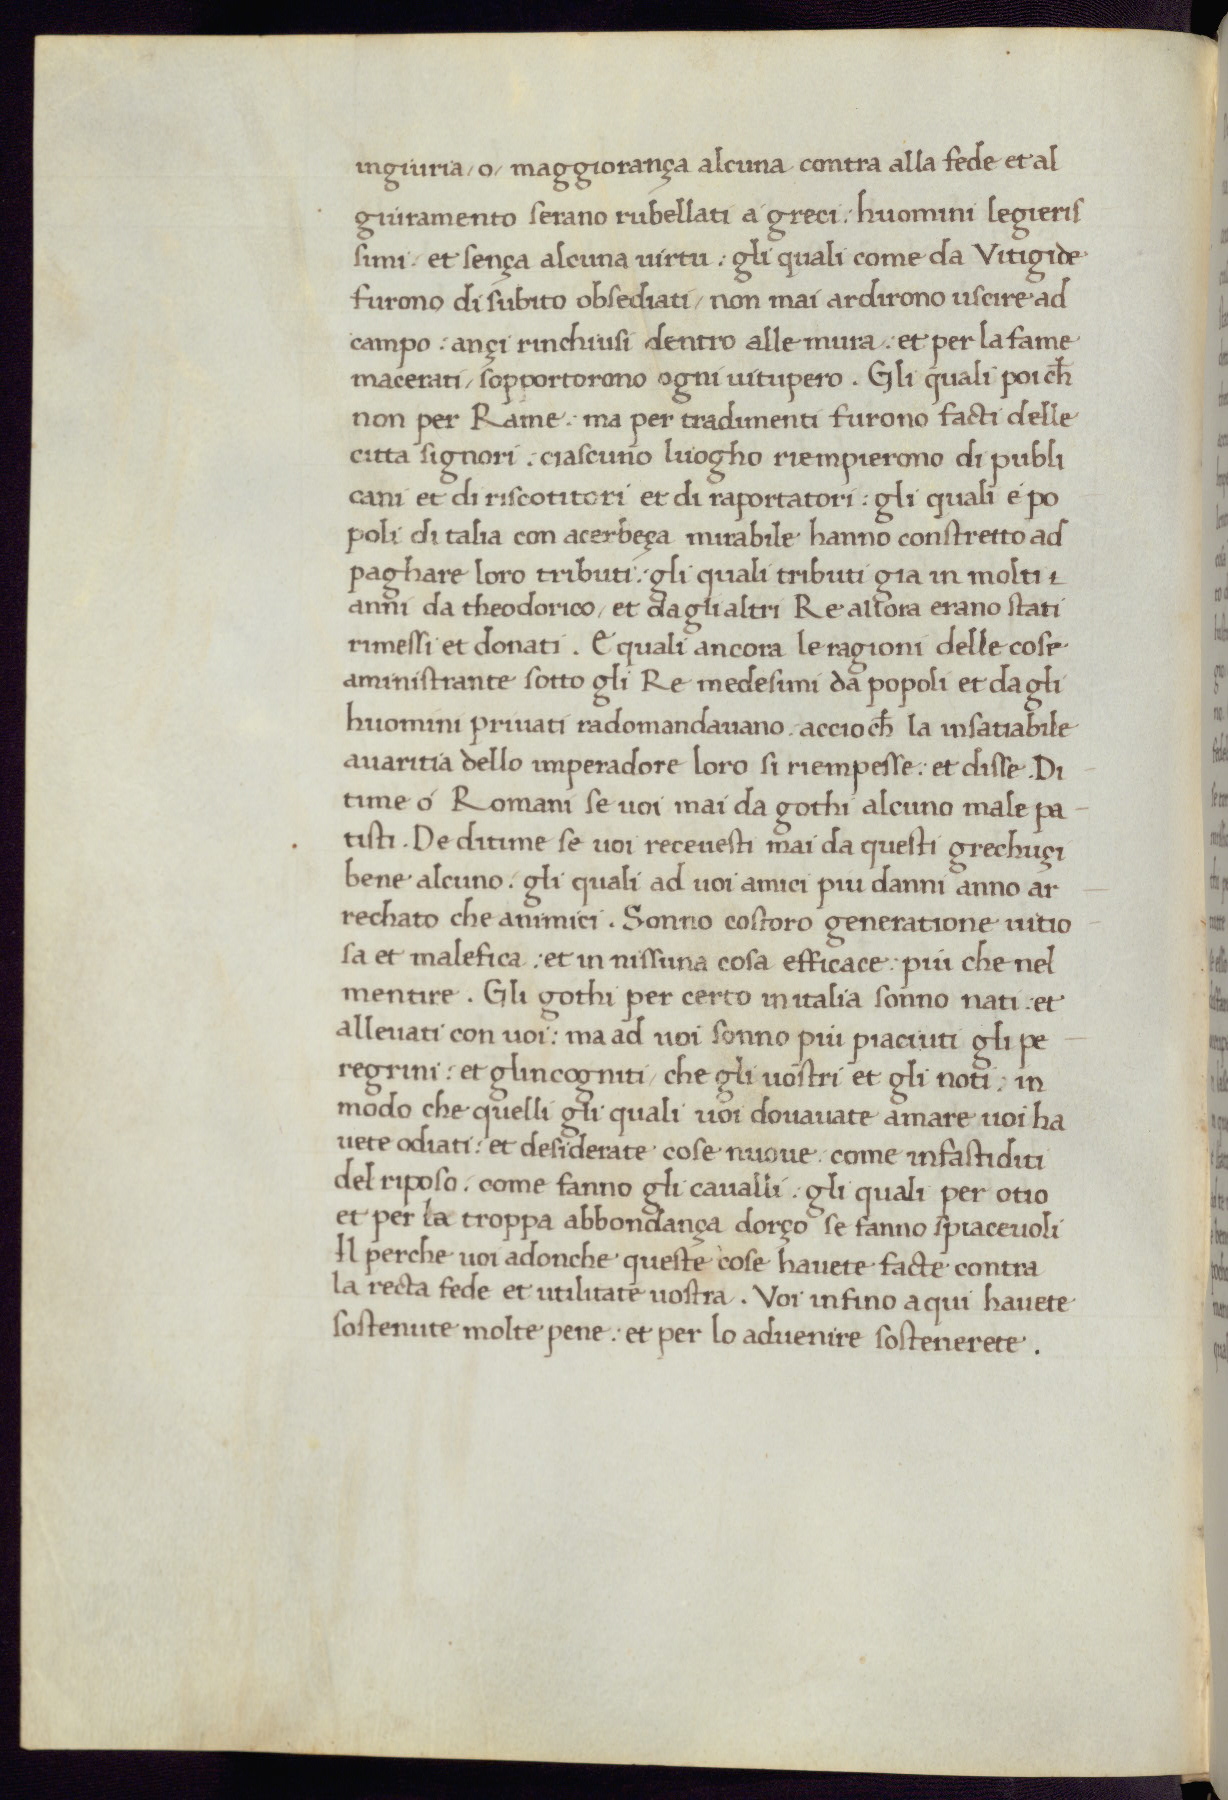 ingiuria / o / maggiorança alcuna contra alla fede et al
giuramento serano rubellati a greci : huomini legieris
simi : et sença alcuna uirtu : gli quali come da Vitigide
furono di subito obsediati / non mai ardirono uscire ad
campo : ançi rinchiusi dentro alle mura : et per la fame
macerati / sopportorono ogni uitupero . Gli quali poi ch̄
non per Rame : ma per tradimenti furono facti delle
citta signori : ciascuno luogho riempierono di publi
cani et di riscotitori et di raportatori : gli quali e po
poli di talia con acerbeça mirabile hanno constretto ad
paghare loro tributi : gli quali tributi gia in molti
anni da theodorico / et da gli altri Re allora erano stati
rimessi et donati . E quali ancora le ragioni delle cose
aministrante sotto gli Re medesimi da popoli et da gli
huomini priuati radomandauano . accio ch̄ la insatiabile
auaritia dello imperadore loro si riempesse : et disse . Di
time o Romani se uoi mai da gothi alcuno male pa
tisti . De ditime se uoi receuesti mai da questi grechuçi
bene alcuno . gli quali ad uoi amici piu danni anno ar
rechato che animici . Sonno costoro generatione uitio
sa et malefica : et in nissuna cosa efficace : piu che nel
mentire . Gli gothi per certo in italia sonno nati : et
alleuati con uoi : ma ad uoi sonno piu piaciuti gli pe
regrini : et glincogniti / che gli uostri et gli noti : in
modo che quelli gli quali uoi douauate amare uoi ha
uete odiati : et desiderate cose nuoue : come infastiditi
del riposo : come fanno gli caualli : gli quali per otio
et per la troppa abbondança dorço se fanno spiaceuoli
Il perche uoi adonche queste cose hauete facte contra
la recta fede et utilitate uostra . Voi infino a qui hauete
sostenute molte pene : et per lo aduenire sostenerete .